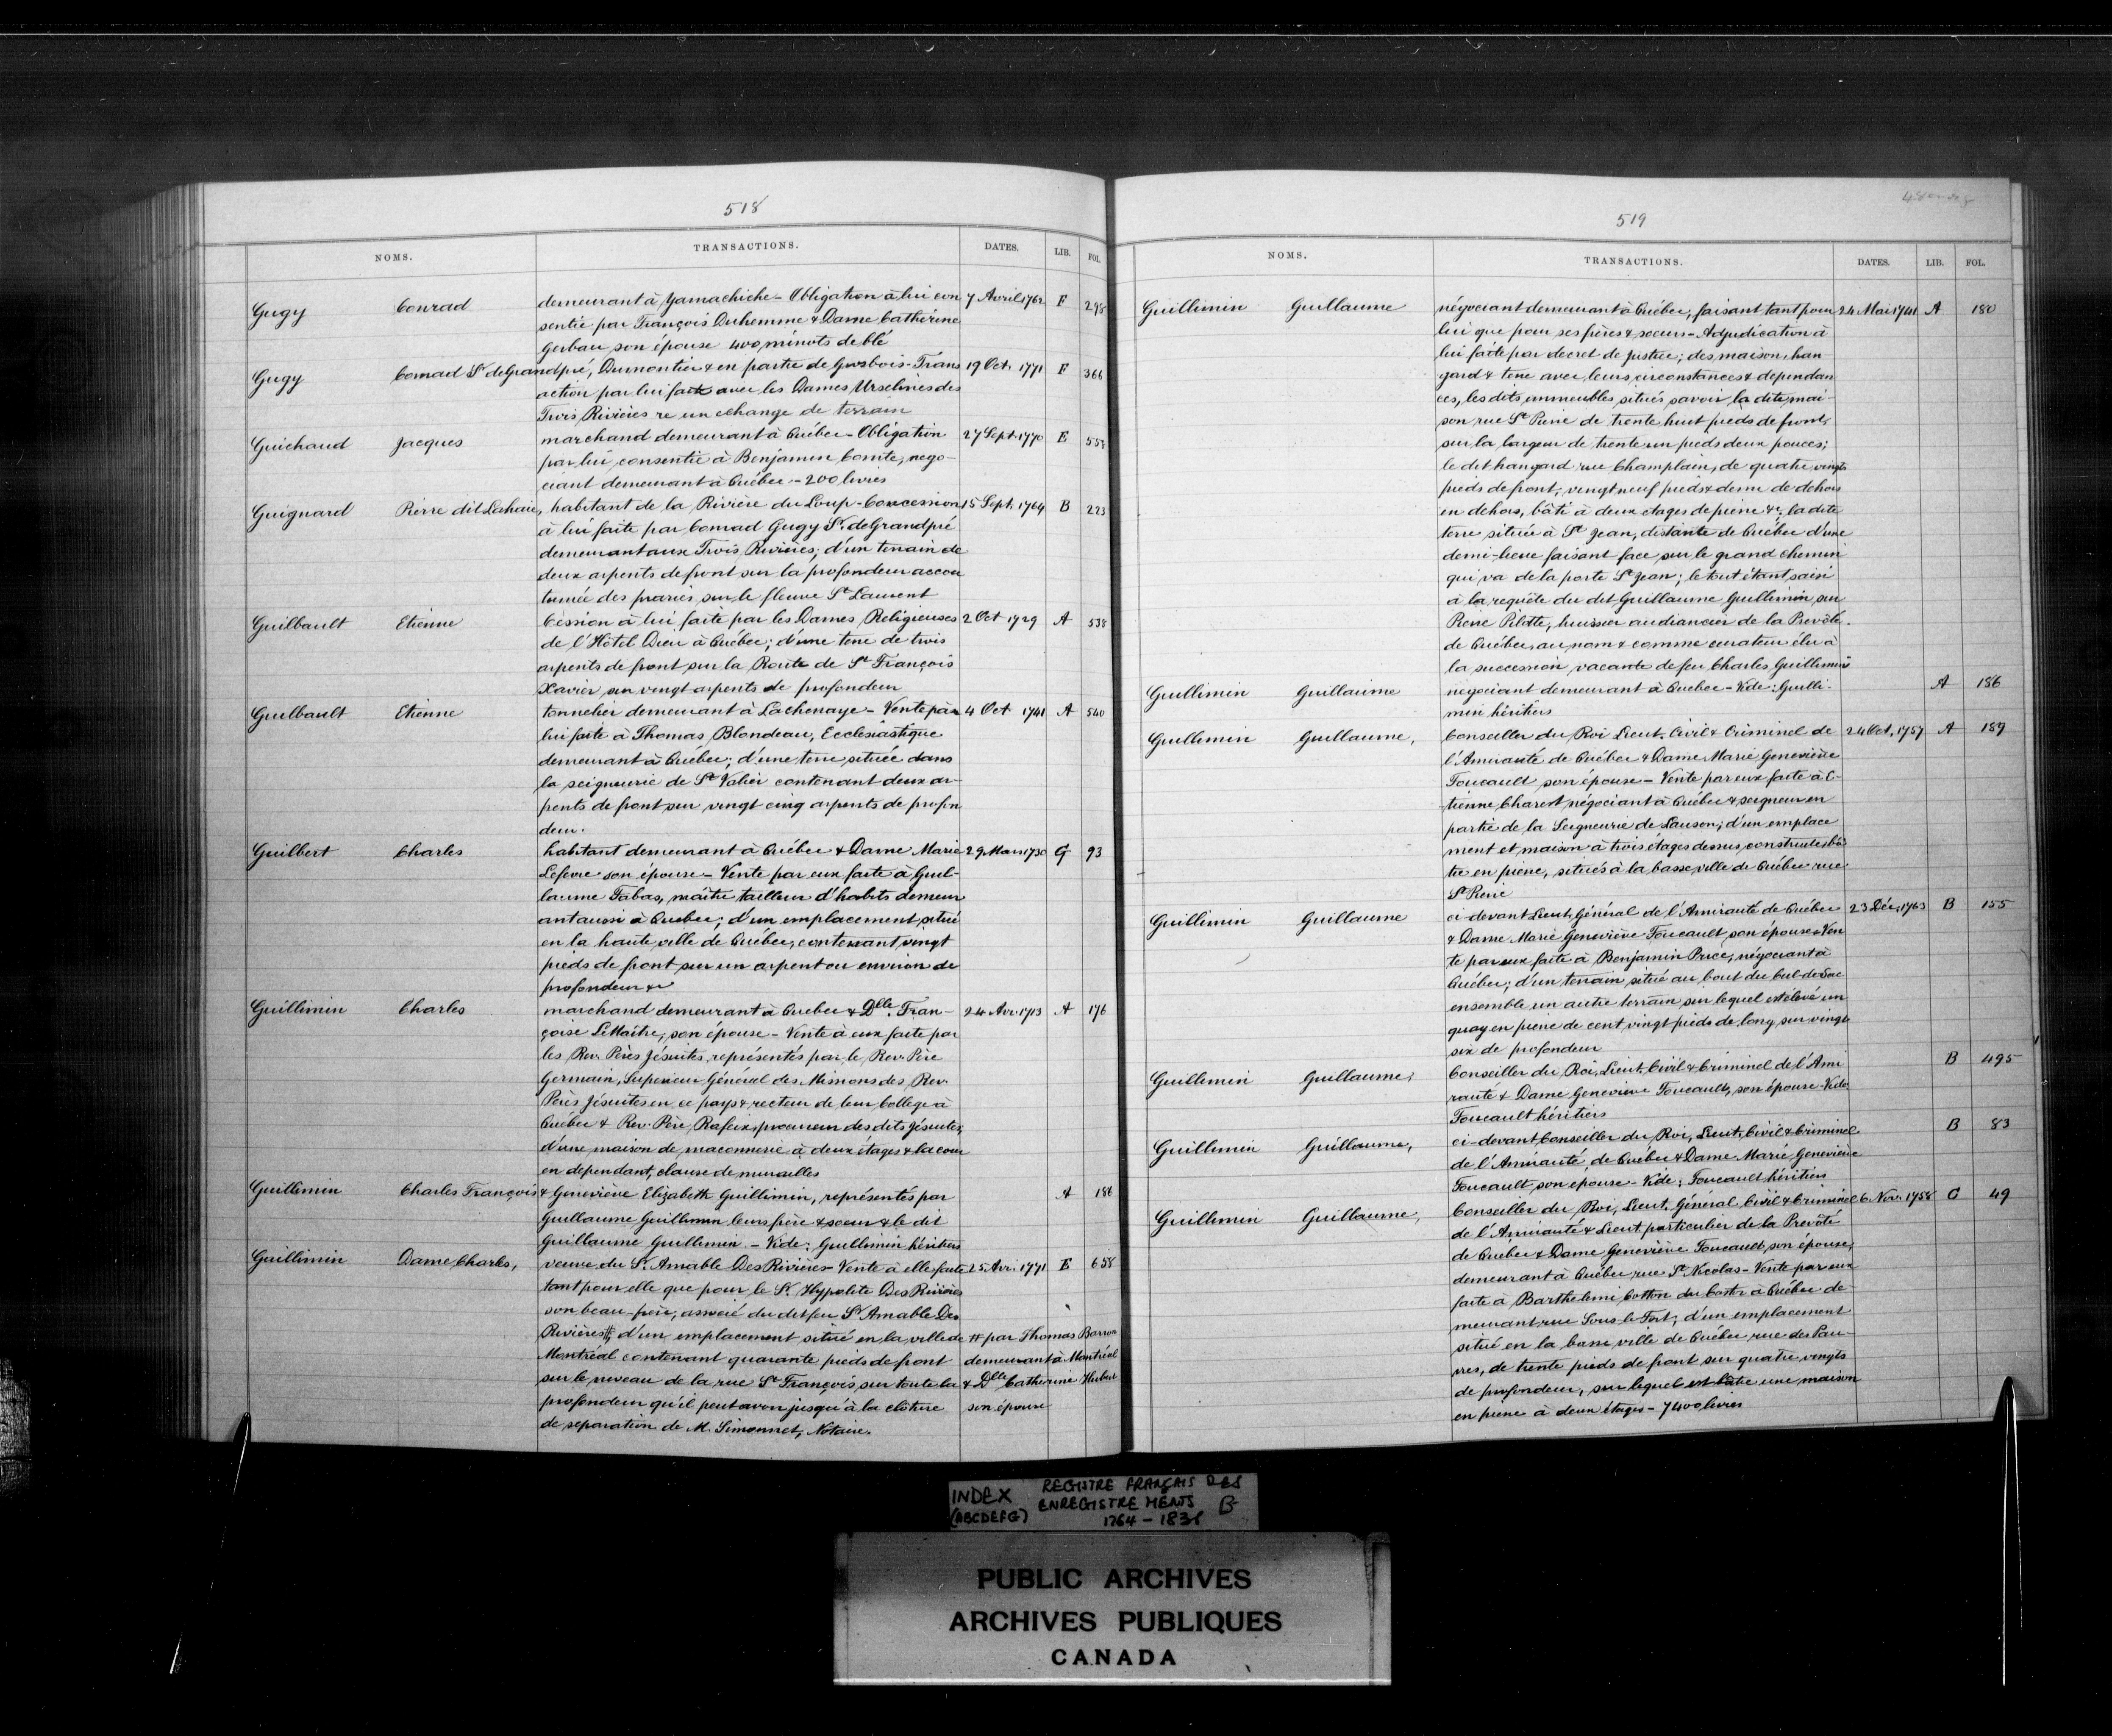 518
NOMS. TRANSACTIONS. DATES. LIB. FOL.
Gugy Conrad demeurant à Yamachiche - Obligation à lui con 7 Avril 1762 F 298
sentie par François Duhemme & Dame Catherine
Gerbau son épouse 400 minots de blé
Gugy Conrad Sr. de Grandpré, Dumontier & en partie de Grosbois - Trans 19 Oct. 1771 F 366
action par lui faite avec les Dames Urselines des
Trois Rivières re un echange de terrain
Guichaud Jacques marchand demeurant à Québec - Obligation 27 Sept. 1770 E 558
par lui consentie à Benjamin Comte, nego-
ciant demeurant à Québec - 200 livres
Guignard Pierre dit Lahaie, habitant de la Rivière du Loup - Concession 15 Sept. 1764 B 223
à lui faite par Conrad Gugy Sr. de Grandpré
demeurant aux Trois Rivières; d'un terrain de
deux arpents de front sur la profondeur accou
tumée des prairies sur le fleuve St. Laurent
Guilbault Etienne Cession à lui faite par les Dames Religieuses 2 Oct 1729 A 538
de l'Hôtel Dieu à Québec; d'une terre de trois
arpents de front sur la Route de St. François
Xavier sur vingt arpents de profondeur
Guilbault Etienne tonnelier demeurant à Lachenaye - Vente par 4 Oct 1741 A 540
lui faite à Thomas Blondeau, Ecclésiastique
demeurant à Québec; d'une terre située dans
la seigneurie de St. Valier contenant deux ar-
pents de front sur vingt cinq arpents de profon
deur.
Guilbert Charles habitant demeurant à Québec & Dame Marie 29 Mars 1730 G 93
Lefevre son épouse - Vente par eux faite à Guil-
laume Tabas, maître tailleur d'habits demeur
ant aussi à Quebec; d'un emplacement situé
en la haute ville de Québec, contenant vingt
pieds de front sur un arpent ou environ de
profondeur &
Guillimin Charles marchand demeurant à Quebec & Dlle. Fran- 24 Avr. 1713 A 176
çoise LeMaître, son épouse - Vente à eux faite par
les Rev. Pères Jésuites, représentés par le Rev. Père
Germain, Superieur Général des Missions des Rev.
Pères Jésuites en ce pays & recteur de leur College à
Québec & Rev. Père Rafeix, procureur des dits Jésuites;
d'une maison de maçonnerie à deux étages & la cour
en dependant, clause de murailles
Guillimin Charles François & Geneviève Elizabeth Guillimin, représentés par A 186
Guillaume Guillimin leurs frère & soeur & le dit
Guillaume Guillimin. - Vide: Guillimin héritiers
Guillimin Dame Charles, veuve du Sr. Amable DesRivières - Vente à elle faite 25 Avr. 1771 E 658
tant pour elle que pour le Sr. Hyppolite DesRivières
son beau-frère, associé du dit feu Sr. Amable Des
Rivières #, d'un emplacement situé en la ville de # par Thomas Barron
Montréal contenant quarante pieds de front demeurant à Montréal
sur le niveau de la rue St. François, sur toute la & Dlle. Catherine Hubert
profondeur qu'il peut avoir jusqu'à la clôture son épouse
de separation de M. Simonnet, Notaire.
519
NOMS. TRANSACTIONS. DATES. LIB. FOL.
Guillimin Guillaume négociant demeurant à Québec, faisant tant pour 24 Mai 1741 A 180
lui que pour ses frères & soeurs - Adjudication à
lui faite par decret de justice; des maison, han
gard & terre avec leurs circonstances & dependan
ces, les dits immeubles situés savoir la dite mai-
son rue St. Pierre de trente huit pieds de front,
sur la largeur de trente un pieds deux pouces;
le dit hangard rue Champlain, de quatre vingts
pieds de front, vingt neuf pieds & demi de dehors
en dehors, bâti à deux étages de pierre &; la dite
terre située à St. Jean, distante de Québec d'une
demi-lieue faisant face sur le grand chemin
qui va de la porte St. Jean; le tout étant saisi
à la requête du dit Guillaume Guillimin sur
René Pilotte, huissier audiancier de la Prevôté
de Québec au nom & comme curateur élu à
la succession vacante de feu Charles Guillimin
Guillimin Guillaume negociant demeurant à Quebec - Vide: Guilli- A 186
min héritiers
Guillimin Guillaume, Conseiller du Roi Lieut. Civil & Criminel de 24 Oct. 1757 A 189
l'Amirauté de Québec & Dame Marie Geneviève
Foucault son épouse - Vente par eux faite à E-
tienne Charest négociant à Québec & seigneur en
partie de la Seigneurie de Lauson; d'un emplace
ment et maison à trois étages dessus construite, bâ
tie en pierre, situés à la basse ville de Québec rue
St. Pierre
Guillimin Guillaume ci-devant Lieut. Général de l'Amirauté de Québec 23 Déc. 1763 B 155
& Dame Marie Geneviève Foucault son épouse - Ven
te par eux faite à Benjamin Price, négociant à
Québec; d'un terrain situé au bout du Cul-de-Sac
ensemble un autre terrain sur lequel est élevé un
quay en pierre de cent vingt pieds de long sur vingt
six de profondeur
Guillimin Guillaume, Conseiller du Roi, Lieut. Civil & Criminel de l'Ami B 495
rauté & Dame Geneviève Foucault, son épouse - Vide
Foucault héritiers
Guillimin Guillaume, ci-devant Conseiller du Roi, Lieut. Civil & Criminel B 83
de l'Amirauté de Québec & Dame Marie Geneviève
Foucault son épouse - Vide: Foucault héritiers
Guillimin Guillaume, Conseiller du Roi, Lieut. Général Civil & Criminel 6 Nov. 1758 C 49
de l'Amirauté & Lieut. particulier de la Prevôté
de Quebec & Dame Geneviève Foucault, son épouse,
demeurant à Québec rue St. Nicolas - Vente par eux
faite à Barthelemi Cotton à Québec de-
meurant rue Sous-le-Fort; d'un emplacement
situé en la basse ville de Québec rue des Pau-
vres, de trente pieds de front sur quatre vingts
de profondeur, sur lequel est bâtie une maison
en pierre à deux étages - 7400 livres
INDEX REGISTRE FRANÇAIS DES
(ABCDEFG) ENREGISTREMENTS B
1764 - 183
PUBLIC ARCHIVES
ARCHIVES PUBLIQUES
CANADA